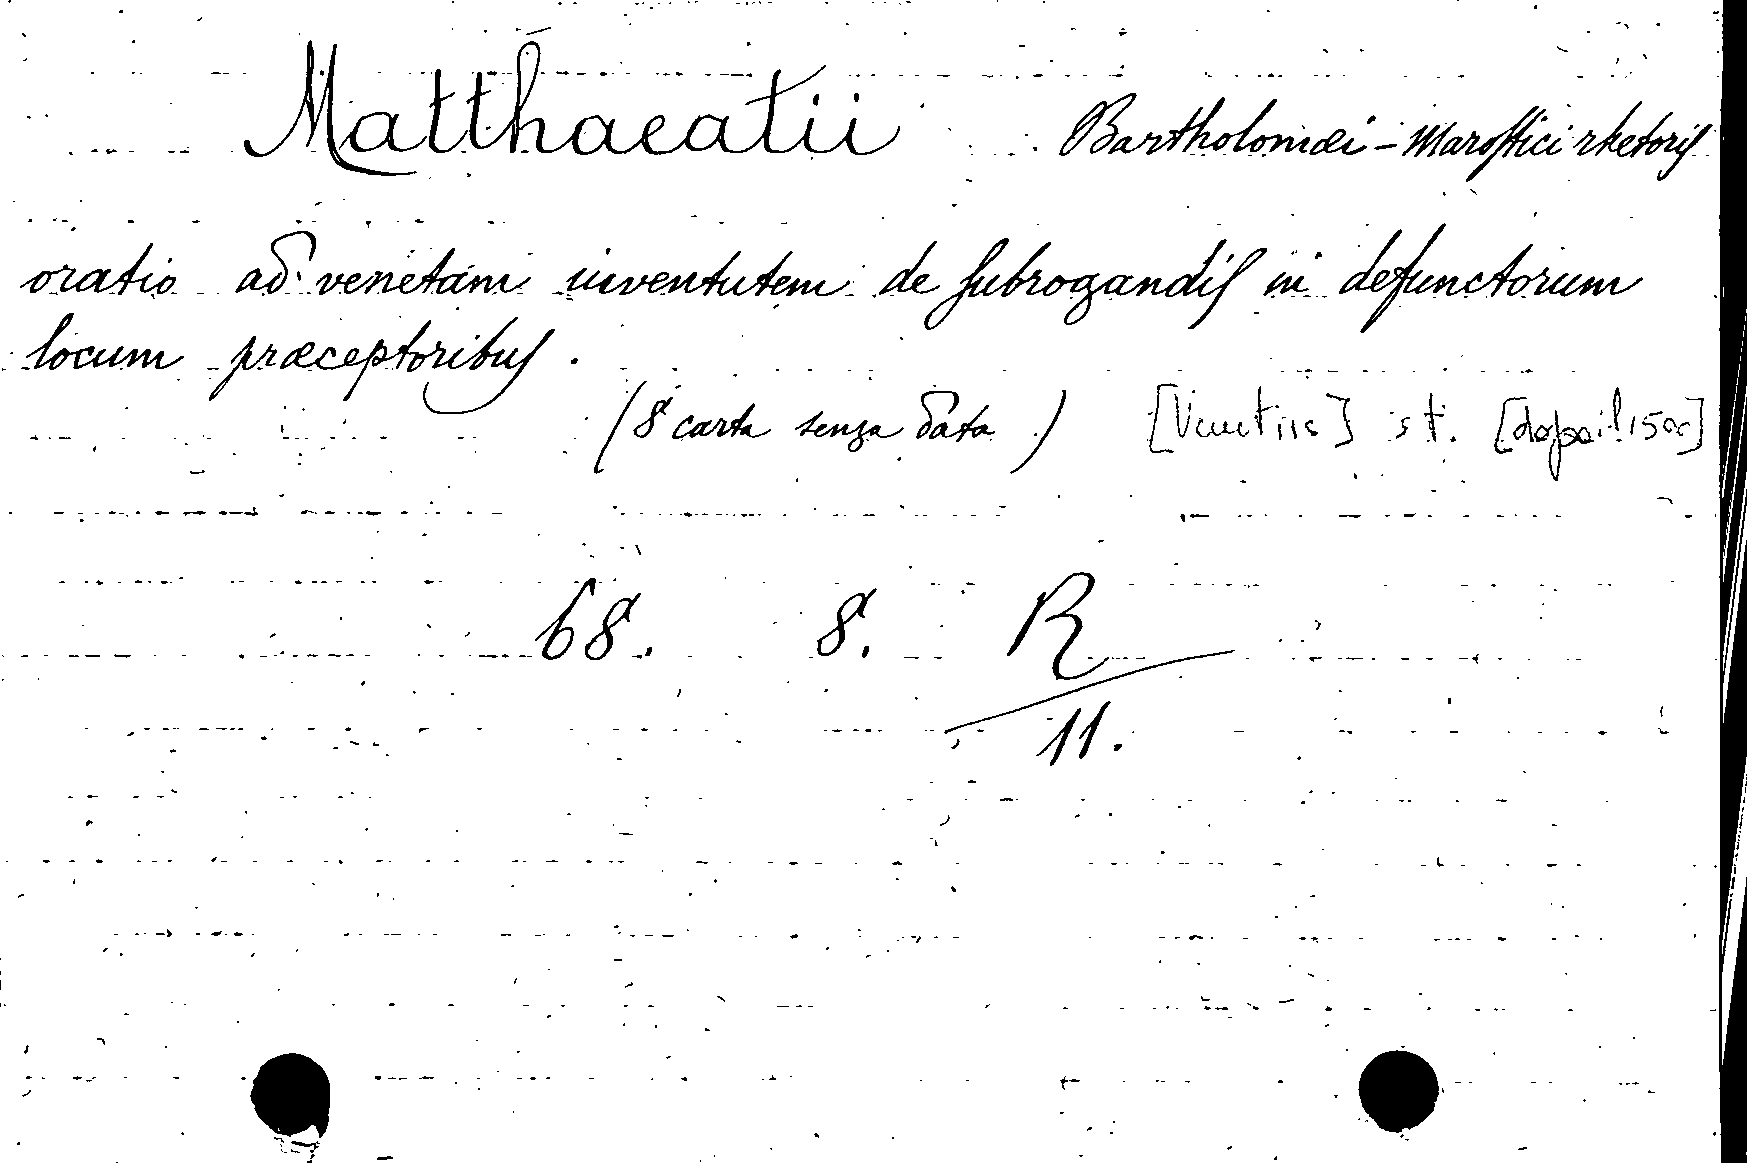 Matthaeatii Bartholomæi - Marostici rhetoris
oratio ad venetam iuventutem de subrogandis in defunctorum
locum præceptoribus.
(8° carta senza data) [Venetiis] s t. [dopo il 150c]
68. 8. R
11.